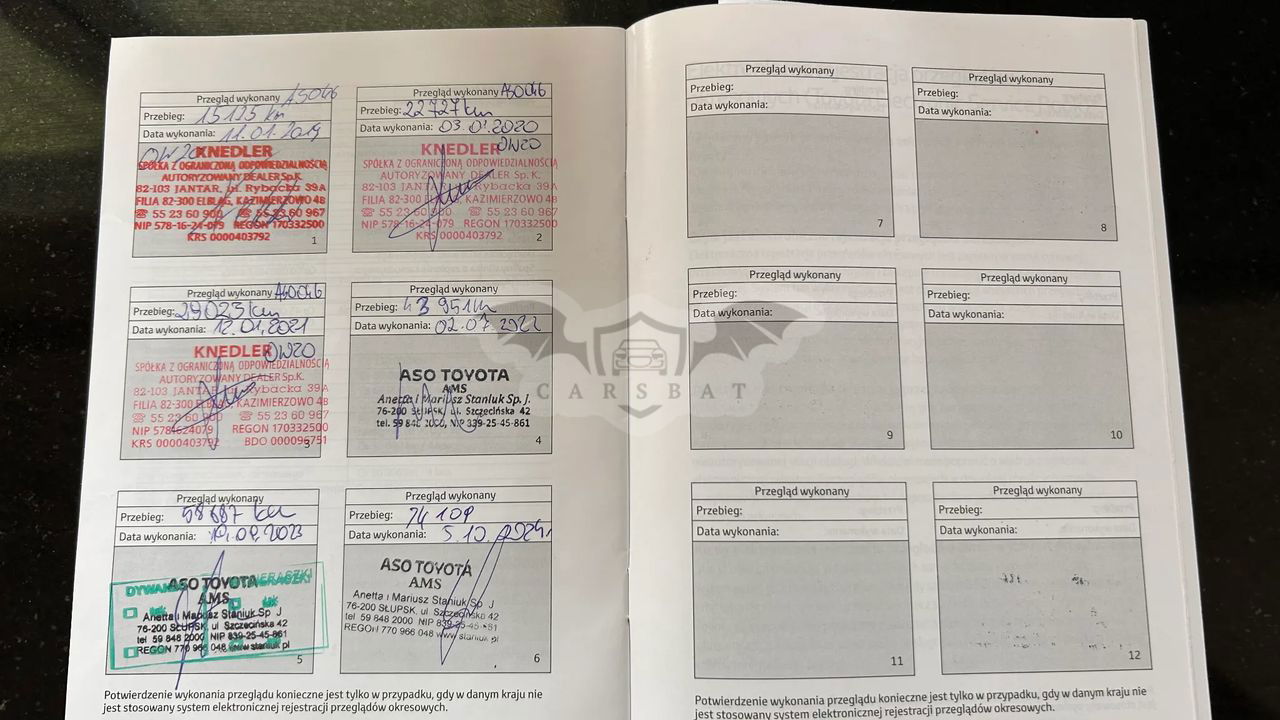 Przegląd wykonany ASO046
Przebieg: 15125 km
Data wykonania: 11.01.2019
OW20 KNEDLER
SPÓŁKA Z OGRANICZONĄ ODPOWIEDZIALNOŚCIĄ
AUTORYZOWANY DEALER Sp.K.
82-103 JANTAR, ul. Rybacka 39A
FILIA 82-300 ELBLĄG, KAZIMIERZOWO 4B
☎ 55 23 60 900 ☎ 55 23 60 967
NIP 578-16-24-079 REGON 170332500
KRS 0000403792
1
Przegląd wykonany ASO046
Przebieg: 22727 km
Data wykonania: 03.01.2020
KNEDLER OW20
SPÓŁKA Z OGRANICZONĄ ODPOWIEDZIALNOŚCIĄ
AUTORYZOWANY DEALER Sp.K.
82-103 JANTAR, ul. Rybacka 39A
FILIA 82-300 ELBLĄG, KAZIMIERZOWO 4B
☎ 55 23 60 900 ☎ 55 23 60 967
NIP 578-16-24-079 REGON 170332500
KRS 0000403792
2
Przegląd wykonany ASO046
Przebieg: 29023 km
Data wykonania: 12.01.2021
KNEDLER OW20
SPÓŁKA Z OGRANICZONĄ ODPOWIEDZIALNOŚCIĄ
AUTORYZOWANY DEALER Sp.K.
82-103 JANTAR, ul. Rybacka 39A
FILIA 82-300 ELBLĄG, KAZIMIERZOWO 4B
☎ 55 23 60 900 ☎ 55 23 60 967
NIP 5781624079 REGON 170332500
KRS 0000403792 BDO 000096751
3
Przegląd wykonany
Przebieg: 43 951 km
Data wykonania: 02.07.2022
ASO TOYOTA
AMS
Anetta i Mariusz Staniuk Sp. J.
76-200 SŁUPSK, ul. Szczecińska 42
tel. 59 848 2000, NIP 839-25-45-861
4
Przegląd wykonany
Przebieg: 58887 km
Data wykonania: 19.09.2023
DYWANIKI
ASO TOYOTA
AMS
Anetta i Mariusz Staniuk Sp J
76-200 SŁUPSK, ul Szczecińska 42
tel 59 848 2000 NIP 839-25-45-861
REGON 770 966 048 www.staniuk.pl
5
Przegląd wykonany
Przebieg: 74 109
Data wykonania: 5.10.2024r
ASO TOYOTA
AMS
Anetta i Mariusz Staniuk Sp J
76-200 SŁUPSK, ul Szczecińska 42
tel 59 848 2000 NIP 839-25-45-861
REGON 770 966 048 www.staniuk.pl
6
Potwierdzenie wykonania przeglądu konieczne jest tylko w przypadku, gdy w danym kraju nie
jest stosowany system elektronicznej rejestracji przeglądów okresowych.
Przegląd wykonany
Przebieg:
Data wykonania:
7
Przegląd wykonany
Przebieg:
Data wykonania:
8
Przegląd wykonany
Przebieg:
Data wykonania:
9
Przegląd wykonany
Przebieg:
Data wykonania:
10
Przegląd wykonany
Przebieg:
Data wykonania:
11
Przegląd wykonany
Przebieg:
Data wykonania:
12
Potwierdzenie wykonania przeglądu konieczne jest tylko w przypadku, gdy w danym kraju nie
jest stosowany system elektronicznej rejestracji przeglądów okresowych.
CARSBAT